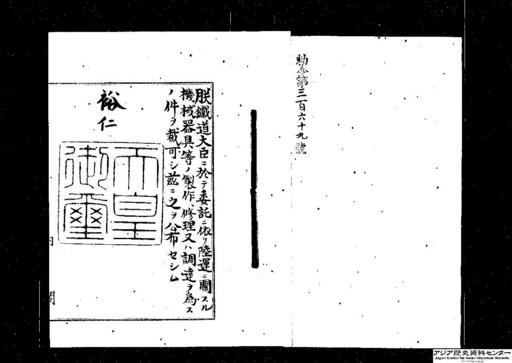 勅令第三百六十九號
朕鐵道大臣ニ於テ委託ニ依リ陸運ニ關スル
機械器具等ノ製作、修理又ハ調達ヲ爲ス
ノ件ヲ裁可シ茲ニ之ヲ公布セシム
裕仁
天皇
御璽
アジア歴史資料センター
Japan Center for Asian Historical Records